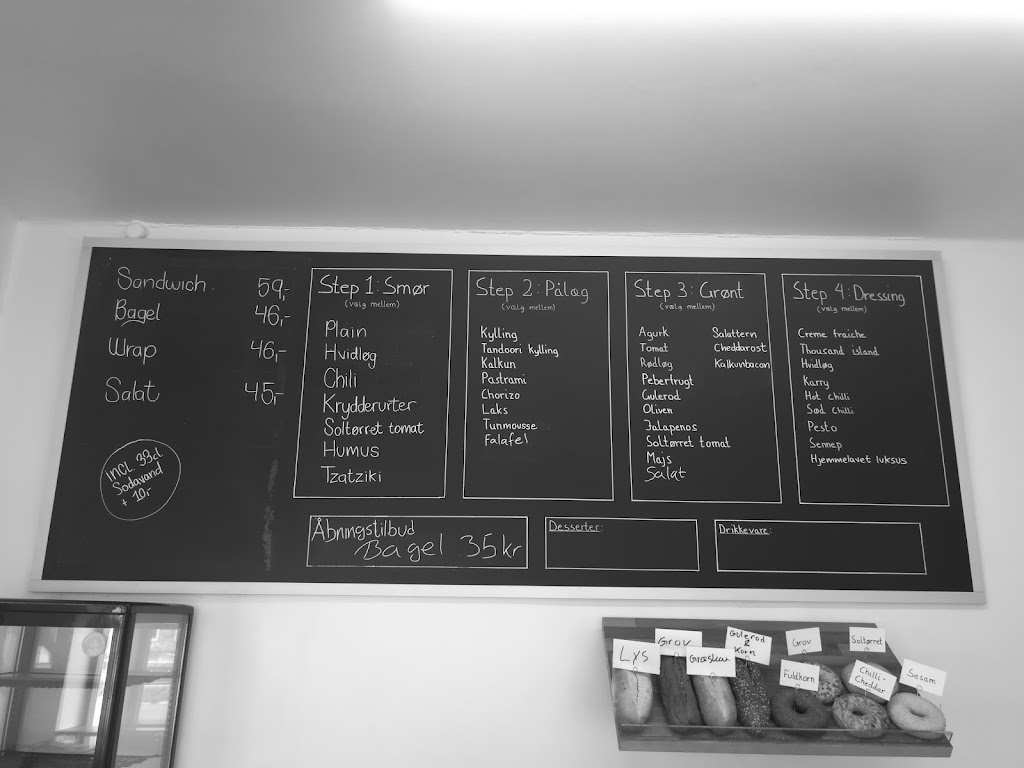 Sandwich. 59,-
Bagel 46,-
Wrap 46,-
Salat 45,-
INCL. 33cl
Sodavand
+ 10,-
Step 1: Smør
(vælg mellem)
Plain
Hvidløg
Chili
Krydderurter
Soltørret tomat
Humus
Tzatziki
Step 2: Pålæg
(vælg mellem)
Kylling
Tandoori kylling
Kalkun
Pastrami
Chorizo
Laks
Tunmousse
Falafel
Step 3: Grønt
(vælg mellem)
Agurk
Tomat
Rødløg
Peberfrugt
Gulerod
Oliven
Jalapenos
Soltørret tomat
Majs
Salat
Salattern
Cheddarost
Kalkunbacon
Step 4: Dressing
(vælg mellem)
Creme fraiche
Thousand island
Hvidløg
Karry
Hot chilli
Sød chilli
Pesto
Sennep
Hjemmelavet luksus
Åbningstilbud
Bagel 35kr
Desserter:
Drikkevare:
Lys
Grov
Græskar
Gulerod
&
Korn
Grov
Fuldkorn
Soltørret
Chilli-
Cheddar
Sesam